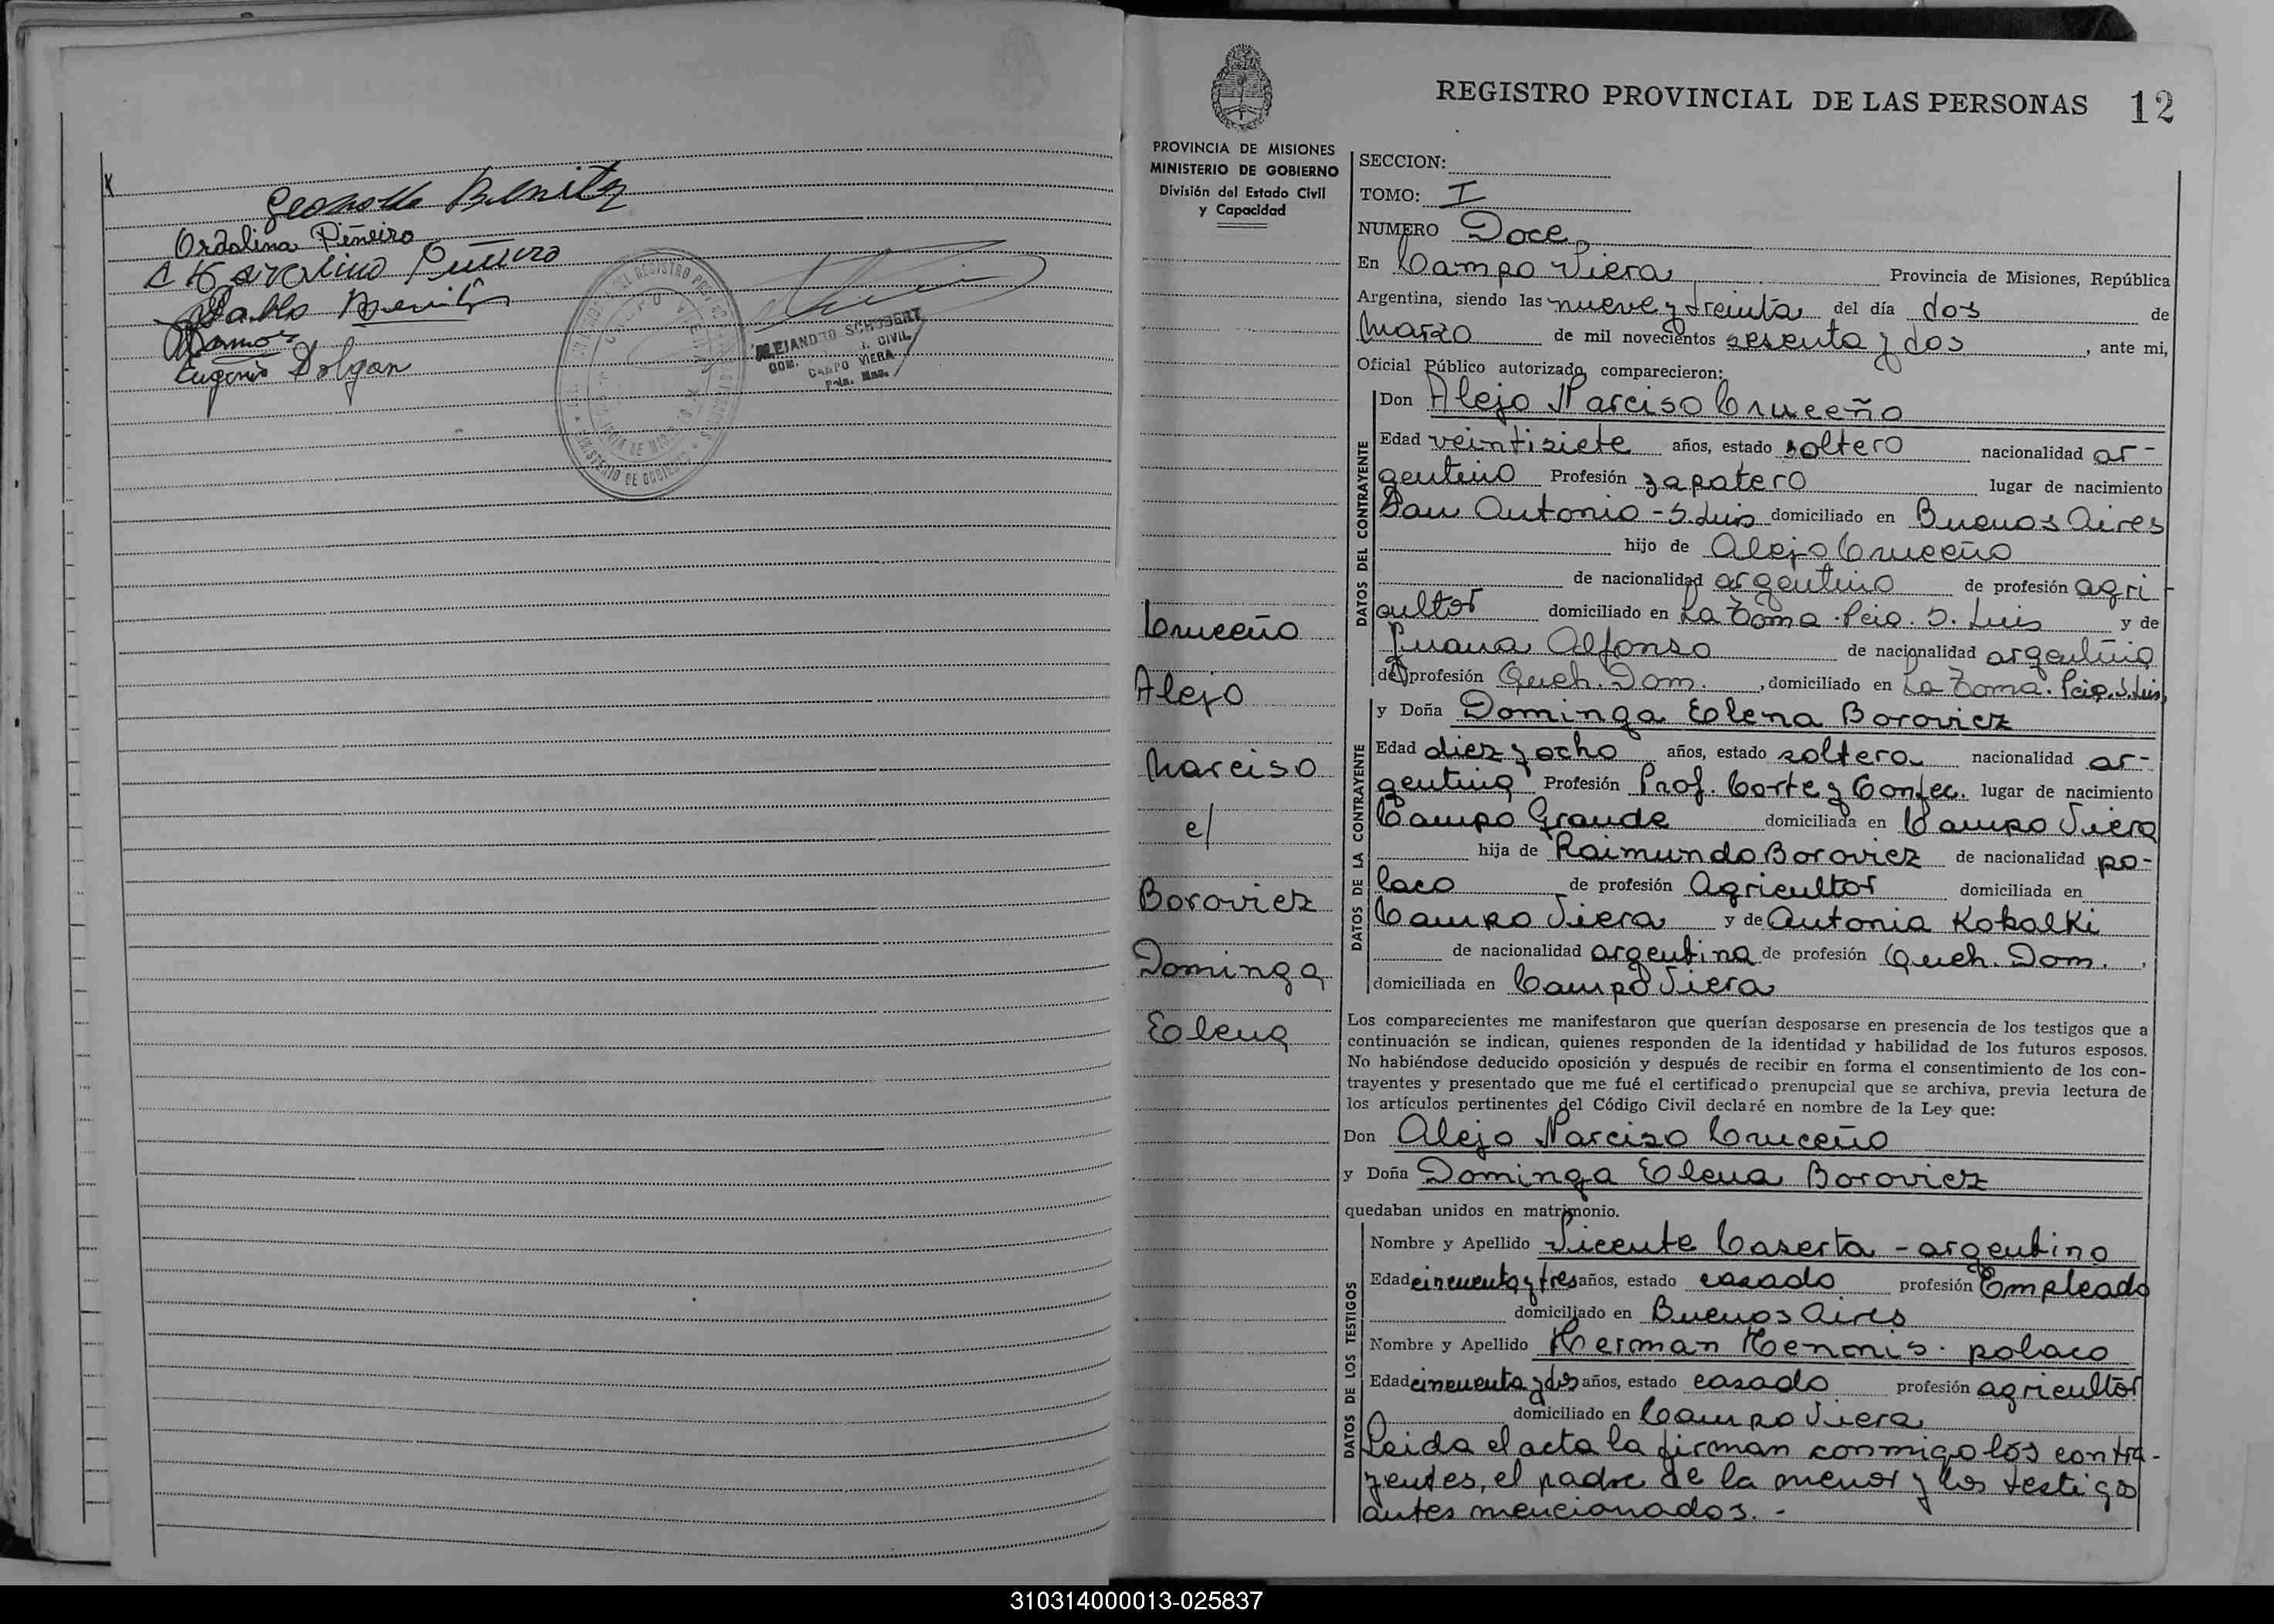 Benitez
Ordalina Piñeiro
Pablo Benitez
Ramos
Eugenio Dolgan
ALEJANDRO SCHUBERT
CIVIL
CAMPO VIERA
MINISTERIO DE GOBIERNO
REGISTRO PROVINCIAL DE LAS PERSONAS 12
PROVINCIA DE MISIONES
MINISTERIO DE GOBIERNO
División del Estado Civil
y Capacidad
Cruceño
Alejo
Narciso
c/
Borovicz
Dominga
Elena
SECCION:
TOMO: I
NUMERO Doce
En Campo Viera Provincia de Misiones, República
Argentina, siendo las nueve y treinta del día dos de
Marzo de mil novecientos sesenta y dos, ante mi,
Oficial Público autorizado comparecieron:
DATOS DEL CONTRAYENTE
Don Alejo Narciso Cruceño
Edad veintisiete años, estado soltero nacionalidad ar-
gentino Profesión zapatero lugar de nacimiento
San Antonio - S. Luis domiciliado en Buenos Aires
hijo de Alejo Cruceño
de nacionalidad argentino de profesión agri-
cultor domiciliado en La Toma. Pcia. S. Luis y de
Juana Alfonso de nacionalidad argentina
de profesión Queh. Dom., domiciliado en La Toma. Pcia. S. Luis,
DATOS DE LA CONTRAYENTE
y Doña Dominga Elena Borovicz
Edad diez y ocho años, estado soltera nacionalidad ar-
gentina Profesión Prof. Corte y Confec. lugar de nacimiento
Campo Grande domiciliada en Campo Viera
hija de Raimundo Borovicz de nacionalidad po-
laco de profesión Agricultor domiciliada en
Campo Viera y de Antonia Kobalki
de nacionalidad argentina de profesión Queh. Dom.,
domiciliada en Campo Viera
Los comparecientes me manifestaron que querían desposarse en presencia de los testigos que a
continuación se indican, quienes responden de la identidad y habilidad de los futuros esposos.
No habiéndose deducido oposición y después de recibir en forma el consentimiento de los con-
trayentes y presentado que me fué el certificado prenupcial que se archiva, previa lectura de
los artículos pertinentes del Código Civil declaré en nombre de la Ley que:
Don Alejo Narciso Cruceño
y Doña Dominga Elena Borovicz
quedaban unidos en matrimonio.
DATOS DE LOS TESTIGOS
Nombre y Apellido Vicente Caserta - argentino
Edad cincuenta y tres años, estado casado profesión Empleado
domiciliado en Buenos Aires
Nombre y Apellido Herman Hennis. polaco
Edad cincuenta y dos años, estado casado profesión agricultor
domiciliado en Campo Viera
Leida el acta la firman conmigo los contra-
yentes, el padre de la menor y los testigos
antes mencionados. -
310314000013-025837